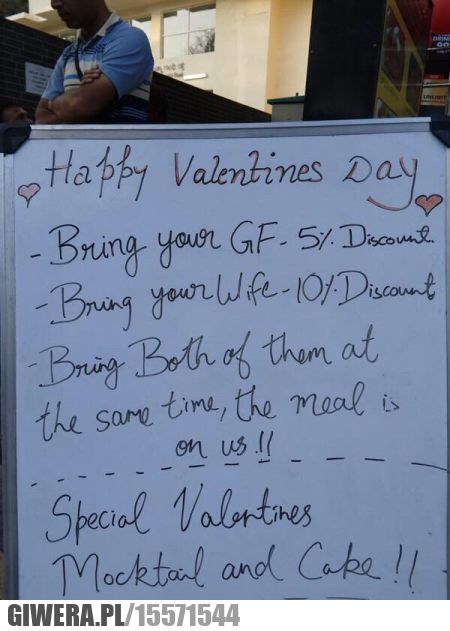 Happy Valentines Day
- Bring your GF - 5% Discount.
- Bring your Wife - 10% Discount
- Bring Both of them at
the same time, the meal is
on us!!
Special Valentines
Mocktail and Cake!!
GIWERA.PL/15571544